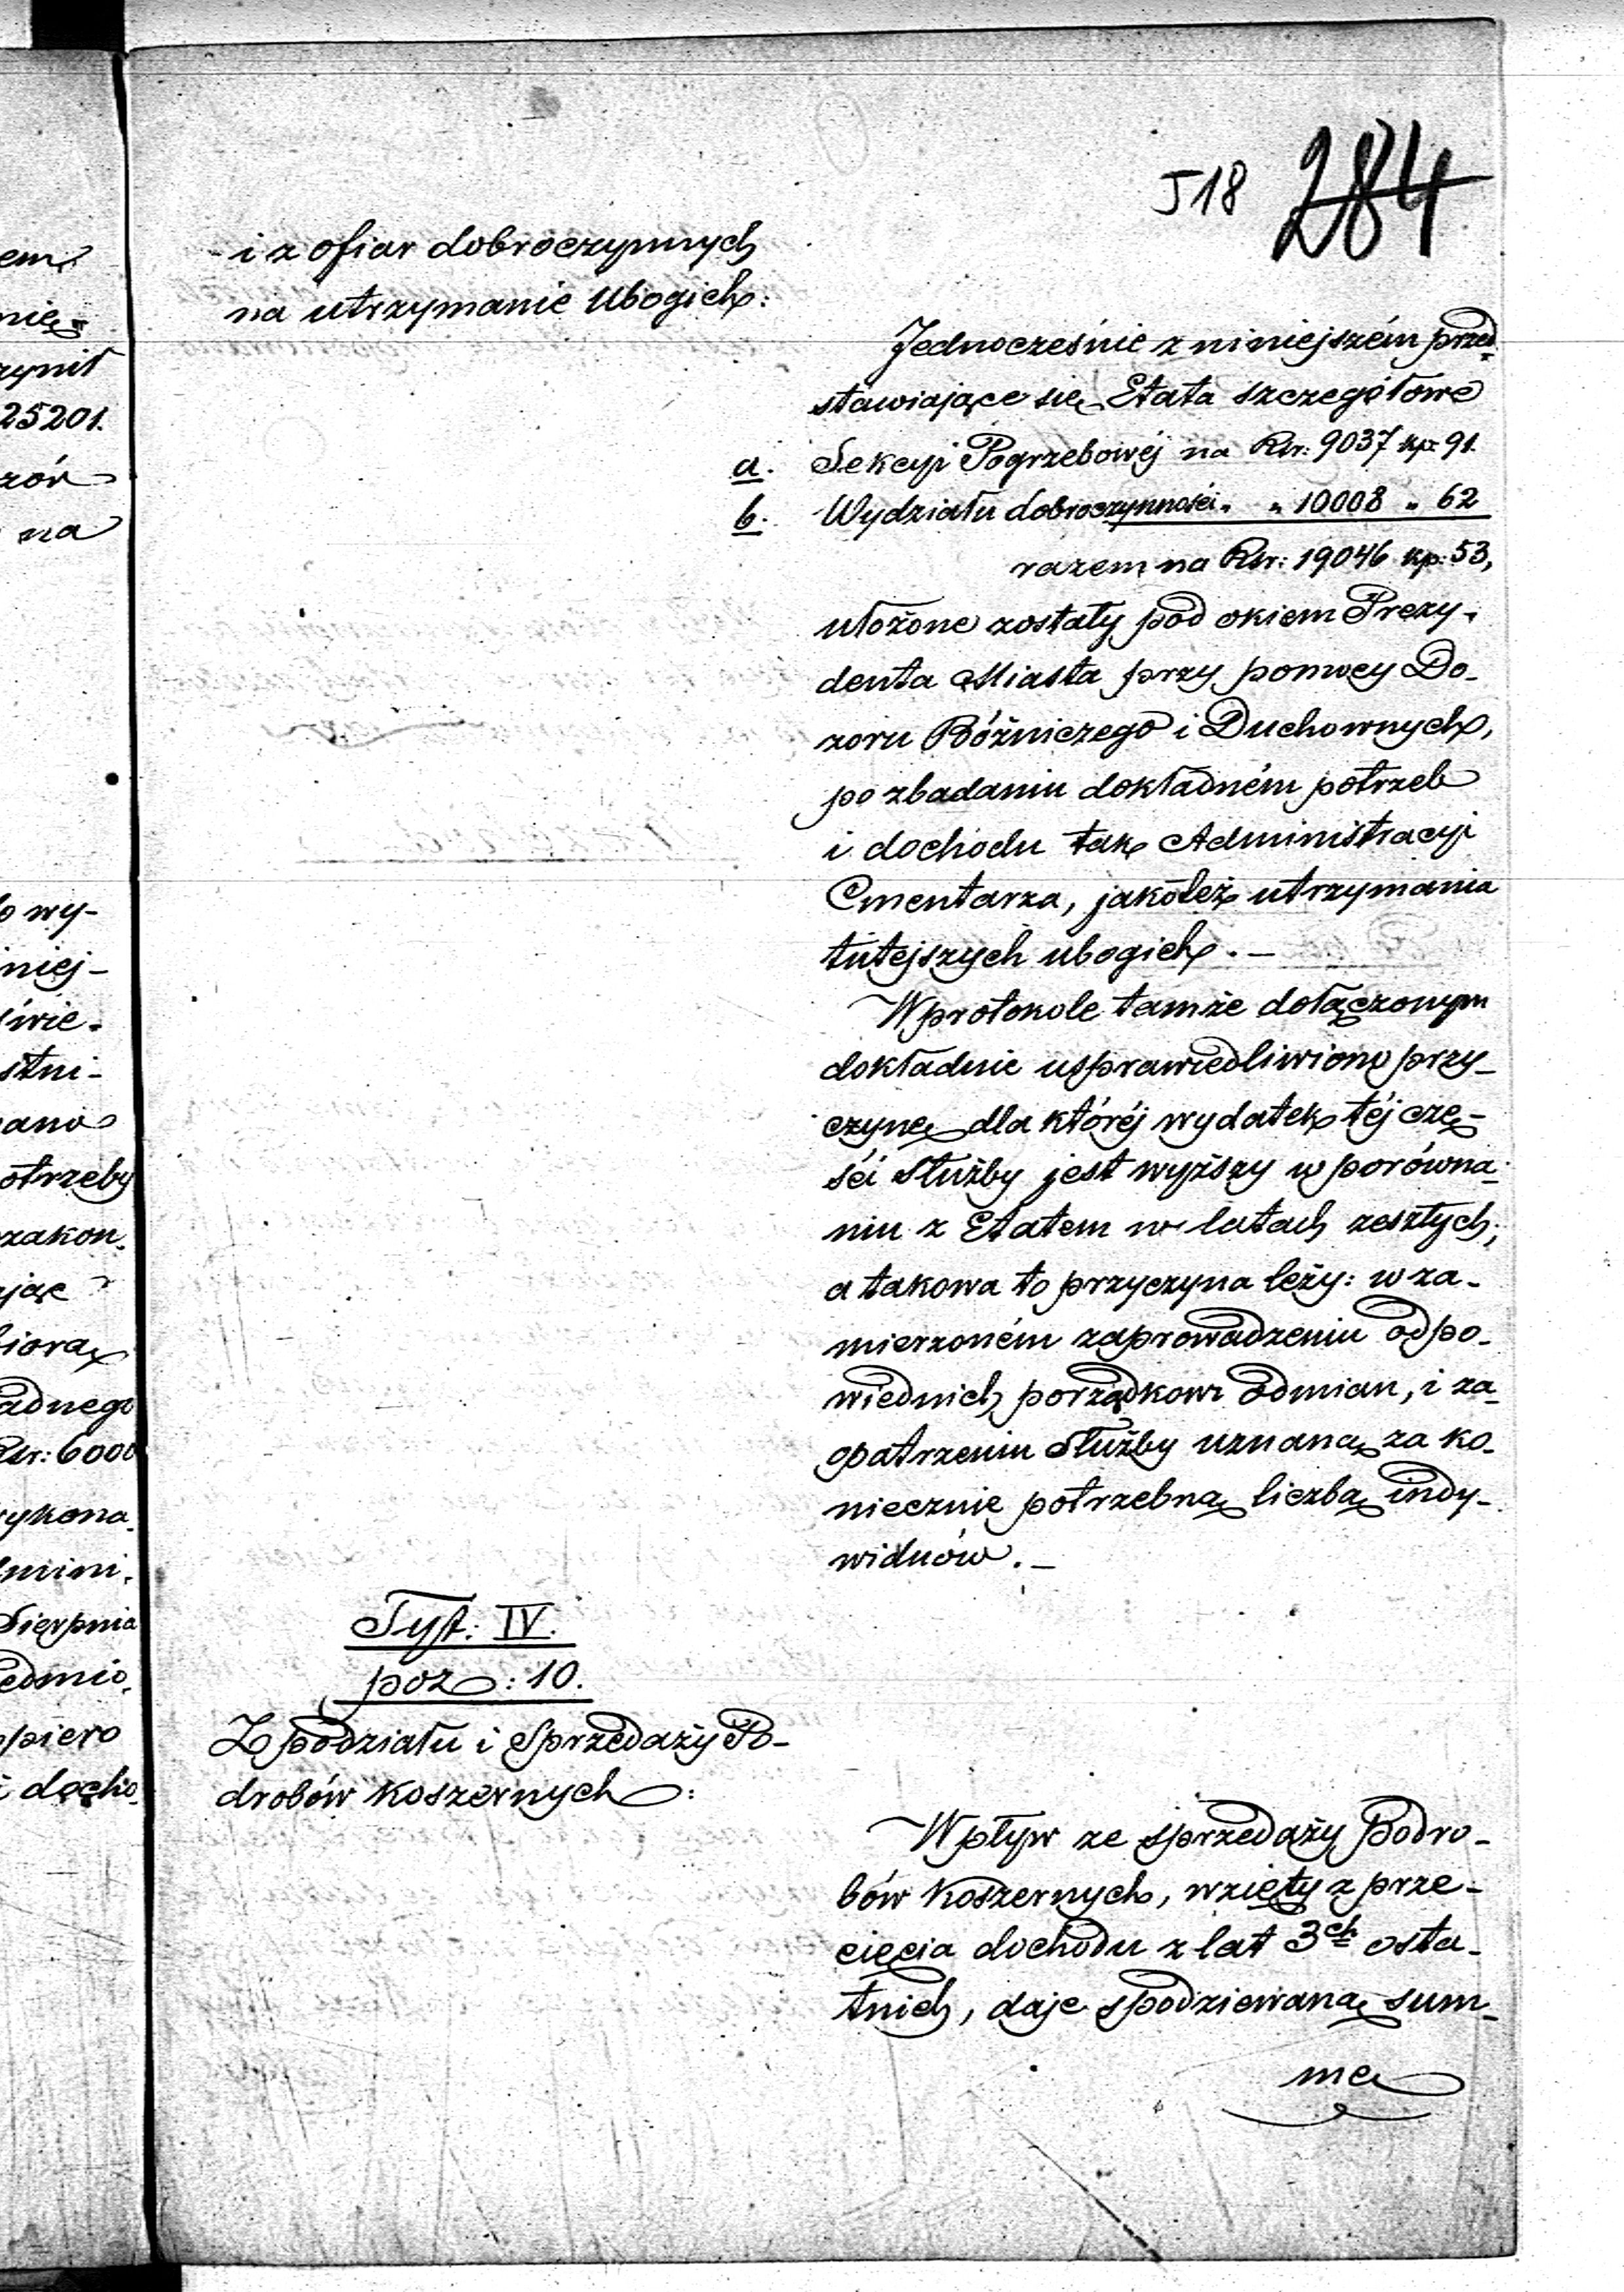 518 284
i z ofiar dobroczynnych
na utrzymanie Ubogich:
Jednocześnie z niniejszém przed-
stawiające się Etata szczegółowe
a. Sekcyi Pogrzebowéj na Rsr: 9037 kp: 91.
b. Wydziału dobroczynności „ „ 10008 „ 62
razem na Rsr: 19046 kp: 53,
ułożone zostały pod okiem Prezy-
denta Miasta przy pomocy Do-
zoru Bóżniczego i Duchownych,
po zbadaniu dokładném potrzeb
i dochodu tak Administracyi
Cmentarza, jakoteż utrzymania
tutejszych ubogich. —
W protokole tamże dołączonym
dokładnie usprawiedliwiono przy-
czynę dla któréj wydatek téj czę-
ści Służby jest wyższy w porówna-
niu z Etatem w latach zeszłych;
a takowa to przyczyna leży: w za-
mierzoném zaprowadzeniu odpo-
wiednich porządkowi odmian, i za-
opatrzeniu Służby uznaną za ko-
niecznie potrzebną liczbą indy-
widuów. —
Tyt: IV.
poz: 10.
Z podziału i Sprzedaży Po-
drobów koszernych:
Wpływ ze sprzedaży Podro-
bów Koszernych, wzięty z prze-
cięcia dochodu z lat 3ch osta-
tnich, daje spodziewaną sum-
mę
em
nie
zynił
25201.
zór
na
o wy-
niej-
świe-
stni-
ano
otrzeby
zakon-
jąc
biorą
adnego
Rsr: 6000
ykona-
mini-
Sierpnia
edmio-
piero
i docho-